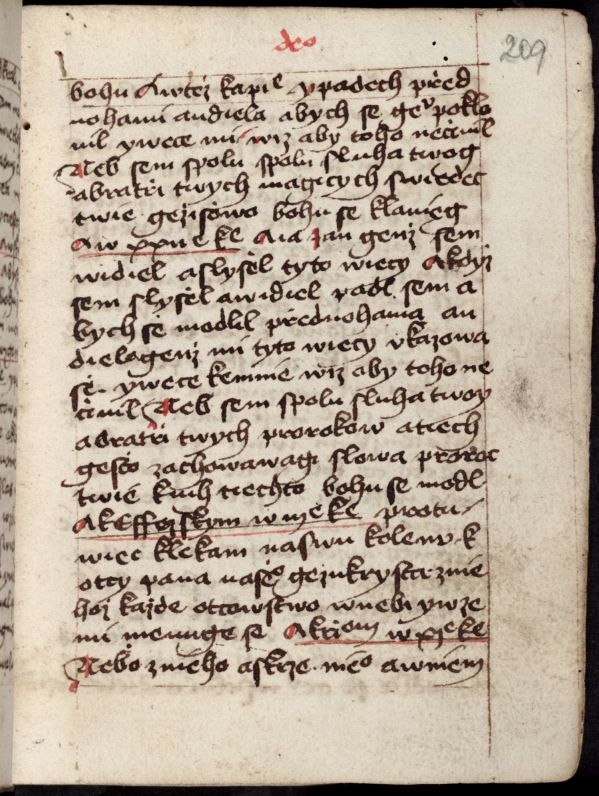 deo
209
bohu Awtéz kapil͛ ypadech před
nohami andiela abych se geᵛ poklo
nil ywece mi wiz aby toho nečinil
Neb sem spolu spolu sluha twog
abratři twych magicych swiedec
twie gezisowo bohu se klanieg
Aw xxii e ke Aia Jan genz sem
widiel aslyšel tyto wiecy Akdyz
sem slyšel awidiel padl sem a
bych se modlil přednohama an
dielogenz mi tyto wiecy vkazowa
še ywece kemnie wiz aby toho ne
činil Neb sem spolu sluha twoy
abratři twych prorokow atiech
gešto zachowawagi slowa proroc
twie knih tiechto bohu se modl
Akeffezskym w iii e ke protu
wiec klekam naswu kolenu k
otcy pana našᵒ gezukrysta znie
hoz kazde otcowstwo wnebi ywze
mi menuge se Akřiom w xi e ke
Nebo znieho askrze nieᵒ awniem